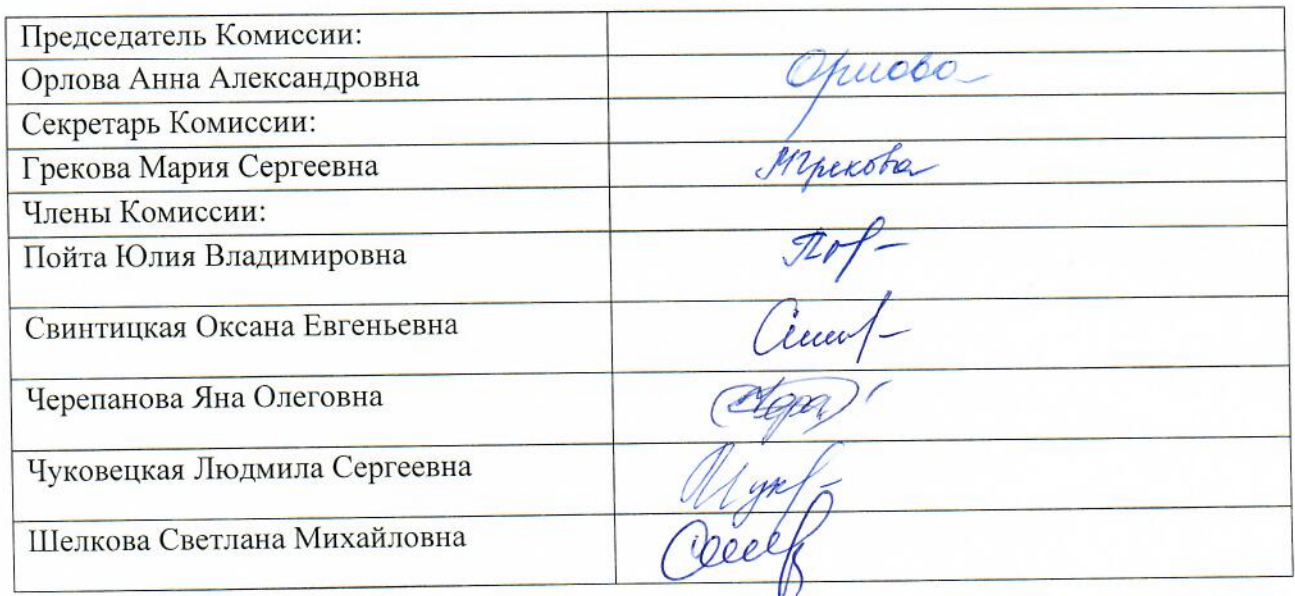 Председатель Комиссии:
Орлова Анна Александровна Орлова
Секретарь Комиссии:
Грекова Мария Сергеевна МГрекова
Члены Комиссии:
Пойта Юлия Владимировна
Свинтицкая Оксана Евгеньевна
Черепанова Яна Олеговна
Чуковецкая Людмила Сергеевна
Шелкова Светлана Михайловна